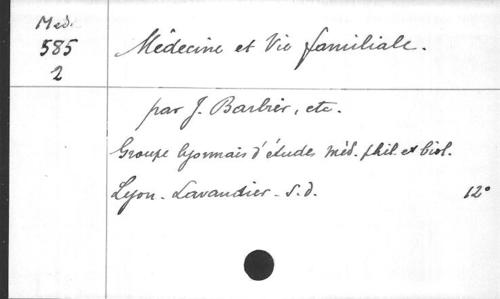 Med.
585
2
Médecine et Vie familiale.
par J. Barbier, etc.
Groupe lyonnais d'études méd. phil. et biol.
Lyon - Lavandier - s.d. 12°